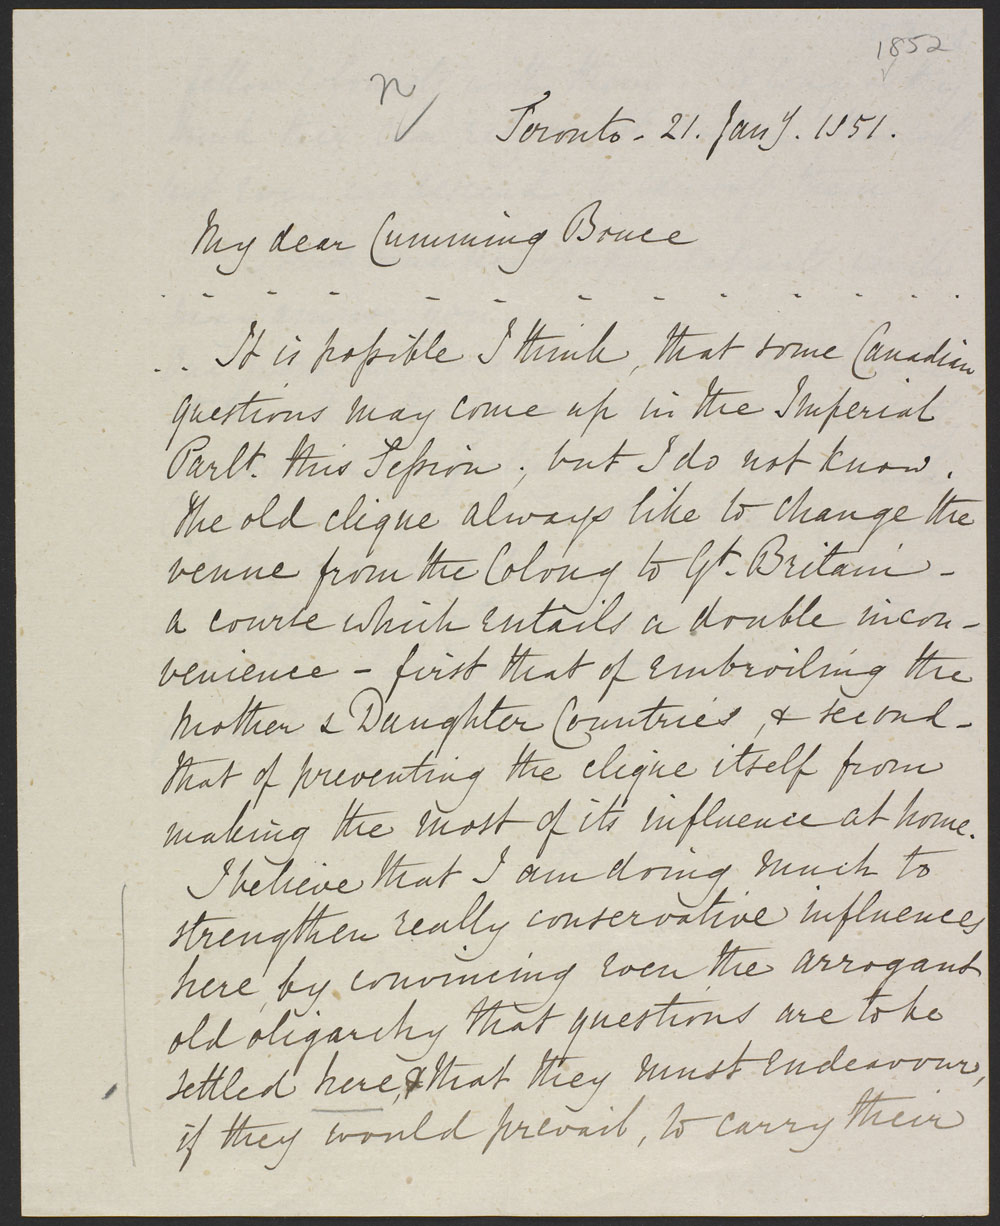 1852
n
Toronto - 21. Jany. 1851.
My dear Cumming Bruce
. - - - - - - - - - - .
. . It is possible I think, that some Canadian
questions may come up in the Imperial
Parlt. this Session ; but I do not know .
The old clique always like to change the
venue from the Colony to Gt. Britain -
a course which entails a double incon-
venience - first that of embroiling the
Mother & Daughter Countries, & second-
that of preventing the clique itself from
making the most of its influence at home.
I believe that I am doing much to
strengthen really conservative influences
here, by convincing even the arrogant
old oligarchy that questions are to be
settled here, & that they must endeavour,
if they would prevail, to carry their